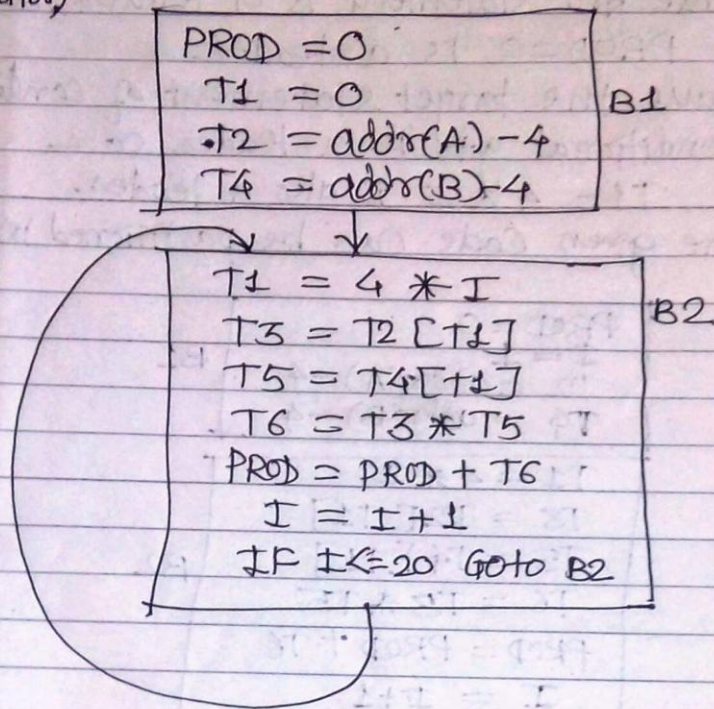 PROD = 0
T1 = 0
T2 = addr(A) - 4
T4 = addr(B) - 4
B1
T1 = 4 * I
T3 = T2 [T1]
T5 = T4 [T1]
T6 = T3 * T5
PROD = PROD + T6
I = I + 1
IF I <= 20 Goto B2
B2